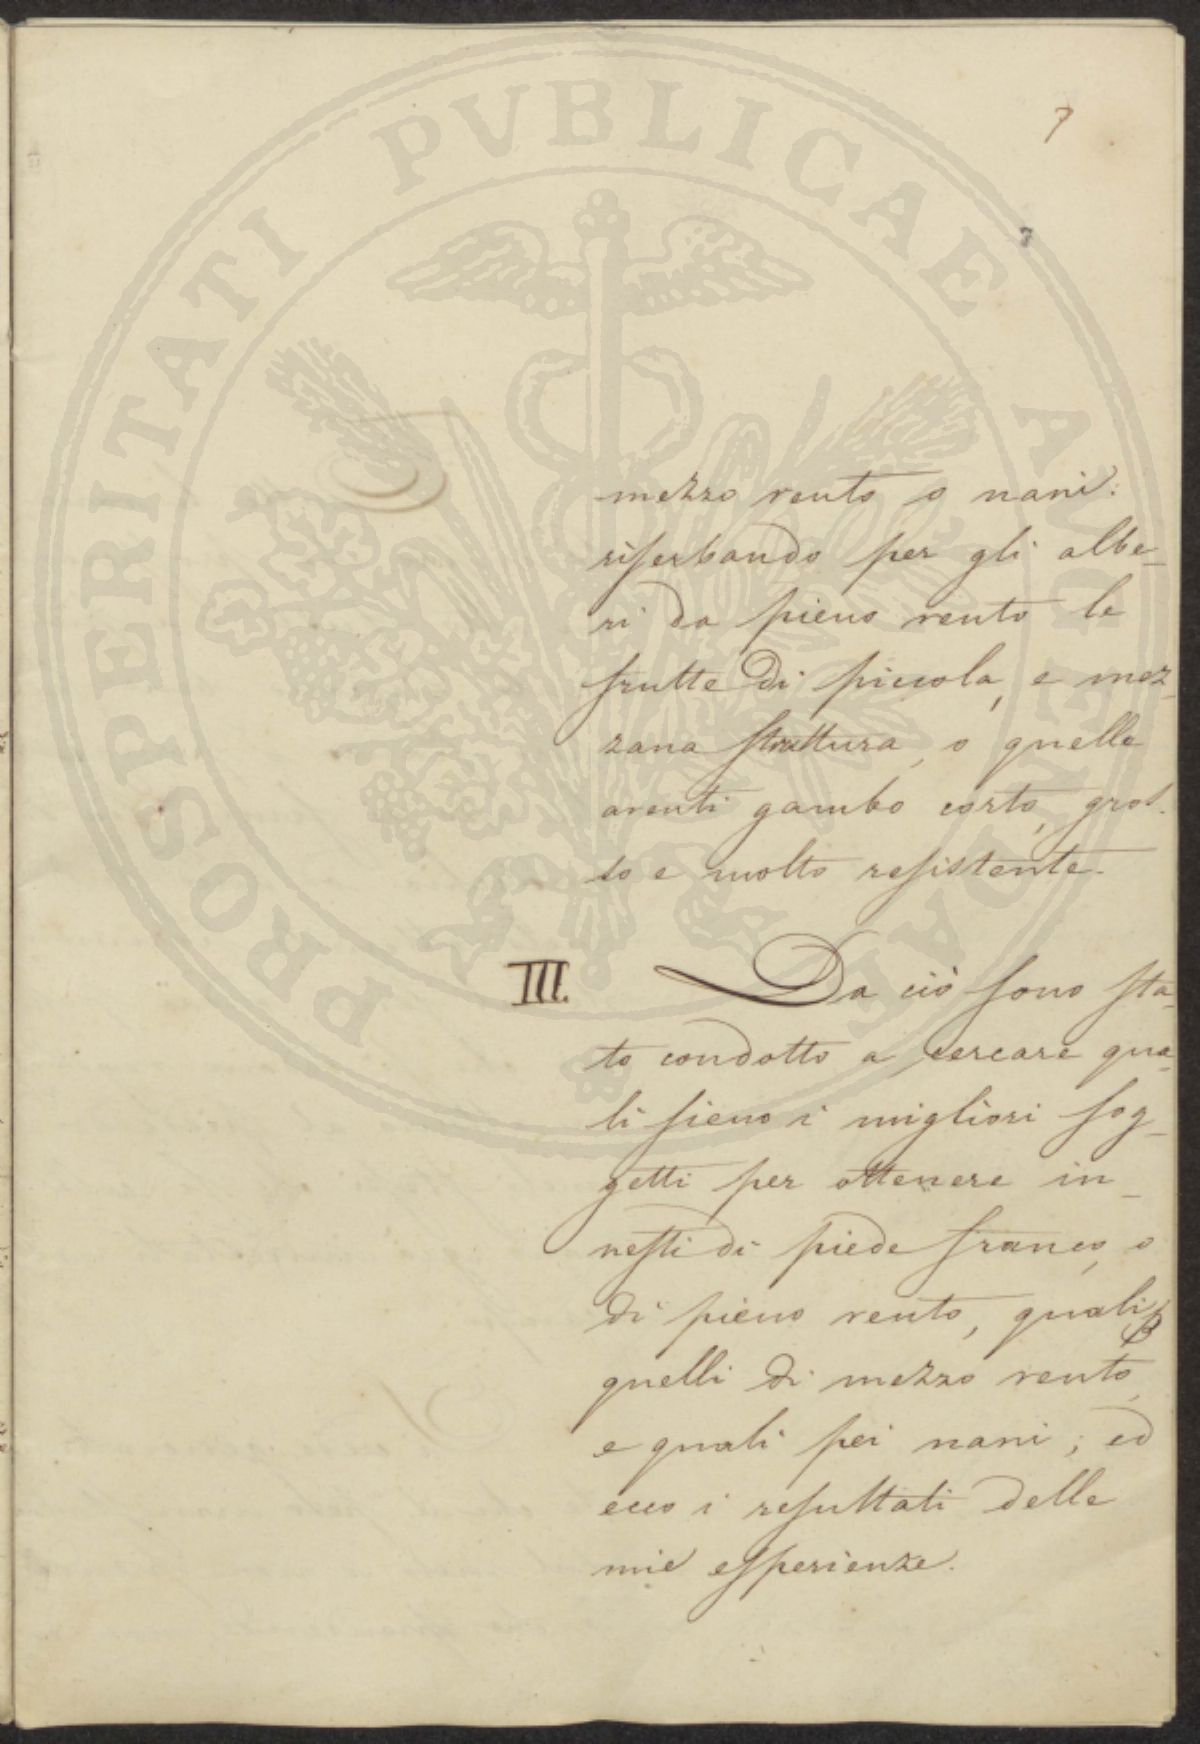 7
7
PROSPERITATI PUBLICAE AUGENDAE
mezzo vento o nani:
riserbando per gli albe-
ri da pieno vento le
frutte di piccola, e mez-
zana struttura, o quelle
aventi gambo corto, gros-
so e molto resistente.
III. Da ciò sono sta-
to condotto a cercare qua-
li sieno i migliori sog-
getti per ottenere in-
nesti di piede franco, o
di pieno vento, quali p
quelli di mezzo vento,
e quali pei nani; ed
ecco i resultati delle
mie esperienze.